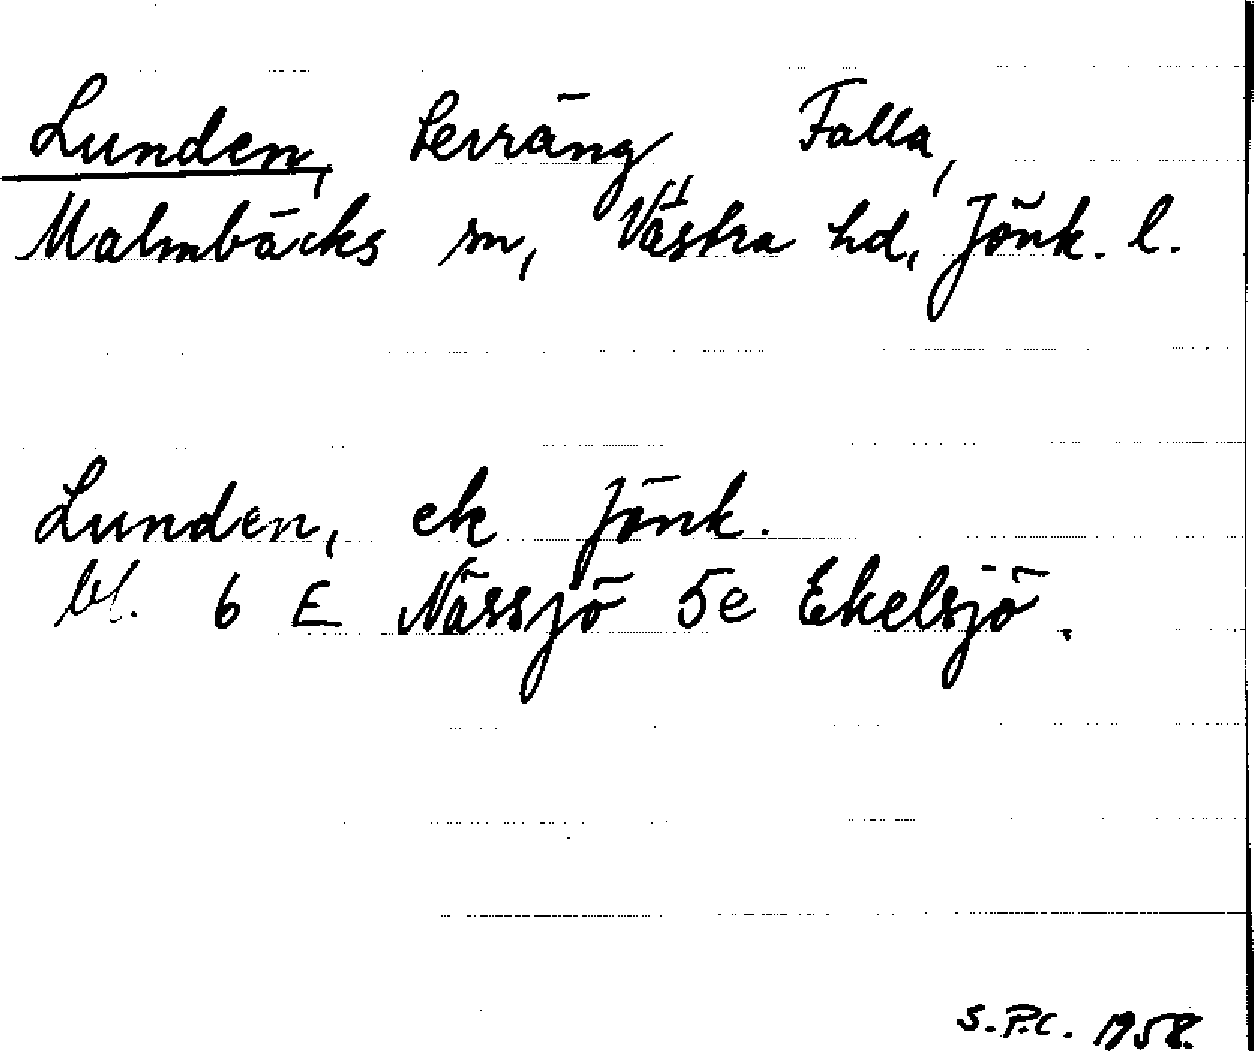 Lunden, terräng Falla,
Malmbäcks sn, Västra hd, Jönk. l.
Lunden, ek Jönk.
bl. 6 E Nässjö 5e Ekelsjö.
S.P.C. 1958.